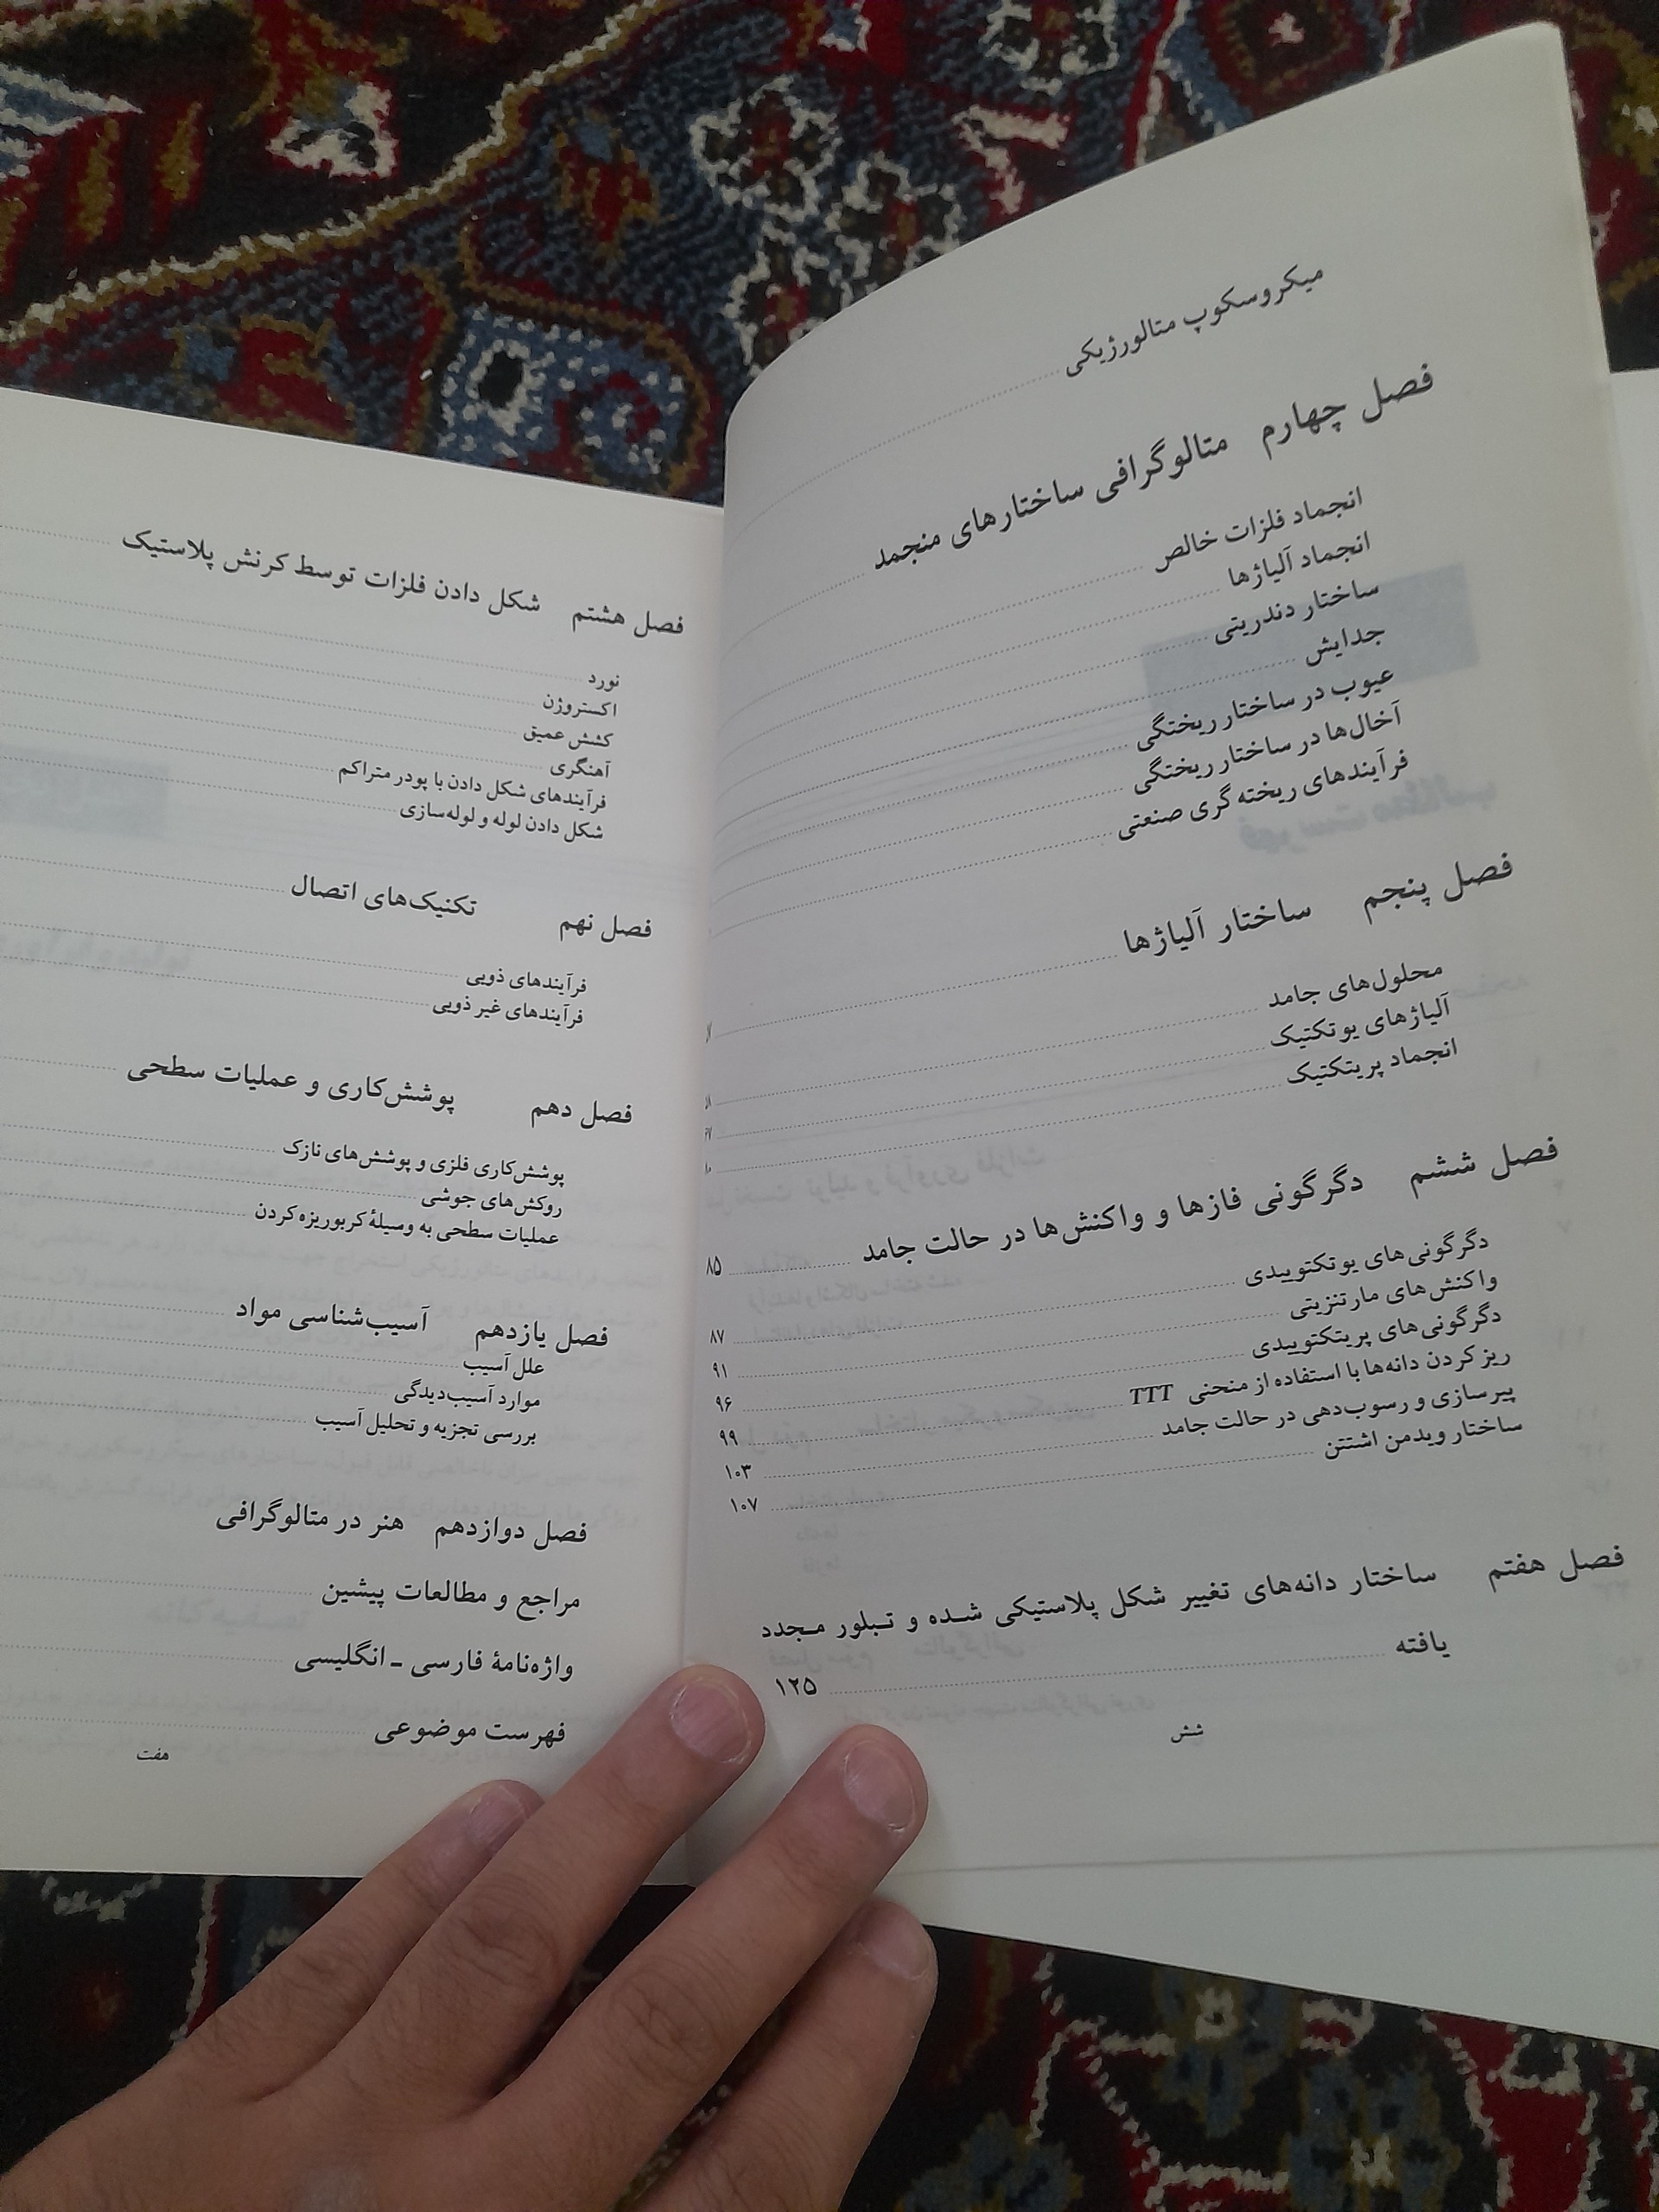 میکروسکوپ متالورژیکی
فصل چهارم متالوگرافی ساختارهای منجمد
انجماد فلزات خالص
انجماد آلیاژها
ساختار دندریتی
جدایش
عیوب در ساختار ریختگی
آخال‌ها در ساختار ریختگی
فرآیندهای ریخته گری صنعتی
فصل پنجم ساختار آلیاژها
محلول‌های جامد
آلیاژهای یوتکتیک
انجماد پریتکتیک
فصل ششم دگرگونی فازها و واکنش‌ها در حالت جامد ۸۵
دگرگونی‌های یوتکتوییدی ۸۷
واکنش‌های مارتنزیتی ۹۱
دگرگونی‌های پریتکتوییدی ۹۶
ریز کردن دانه‌ها با استفاده از منحنی TTT ۹۹
پیرسازی و رسوب‌دهی در حالت جامد ۱۰۳
ساختار ویدمن اشتتن ۱۰۷
فصل هفتم ساختار دانه‌های تغییر شکل پلاستیکی شده و تبلور مجدد
یافته ۱۲۵
شش
فصل هشتم شکل دادن فلزات توسط کرنش پلاستیک
نورد
اکستروژن
کشش عمیق
آهنگری
فرآیندهای شکل دادن با پودر متراکم
شکل دادن لوله و لوله‌سازی
فصل نهم تکنیک‌های اتصال
فرآیندهای ذوبی
فرآیندهای غیر ذوبی
فصل دهم پوشش‌کاری و عملیات سطحی
پوشش‌کاری فلزی و پوشش‌های نازک
روکش‌های جوشی
عملیات سطحی به وسیلهٔ کربوریزه کردن
فصل یازدهم آسیب‌شناسی مواد
علل آسیب
موارد آسیب‌دیدگی
بررسی تجزیه و تحلیل آسیب
فصل دوازدهم هنر در متالوگرافی
مراجع و مطالعات پیشین
واژه‌نامهٔ فارسی ـ انگلیسی
فهرست موضوعی
هفت